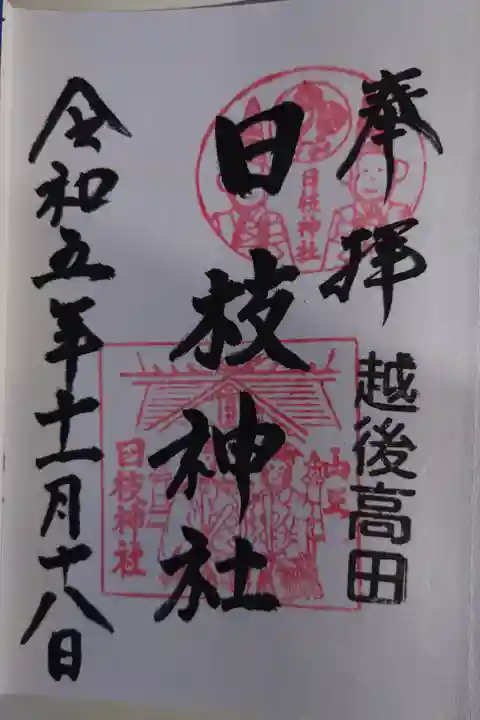 奉拝
越後高田
日枝神社
日枝神社
山王
日枝神社
令和五年十一月十八日